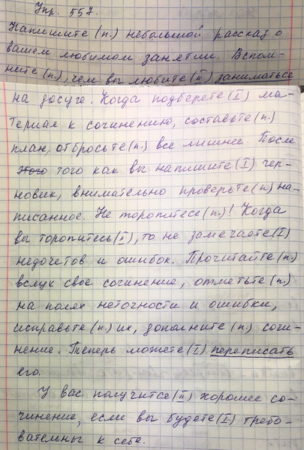 Упр. 557
Напишите (п.) небольшой рассказ о
вашем любимом занятии. Вспом-
ните (п), чем вы любите (II) заниматься
на досуге. Когда подберете (I) ма-
териал к сочинению, составьте (п)
план, отбросьте (п.) все лишнее После
этого того как вы напишите (I) чер-
новик, внимательно проверьте (п) на-
писанное. Не торопитесь (п.)! Когда
вы торопитесь (II), то не замечаете (I)
недочетов и ошибок. Прочитайте (п)
вслух свое сочинение, отметьте (п)
на полях неточности и ошибки,
исправьте (п) их, дополните (п) сочи-
нение. Теперь можете (I) переписать
его.
У вас получится (II) хорошее со-
чинение, если вы будете (I) требо-
вательны к себе.